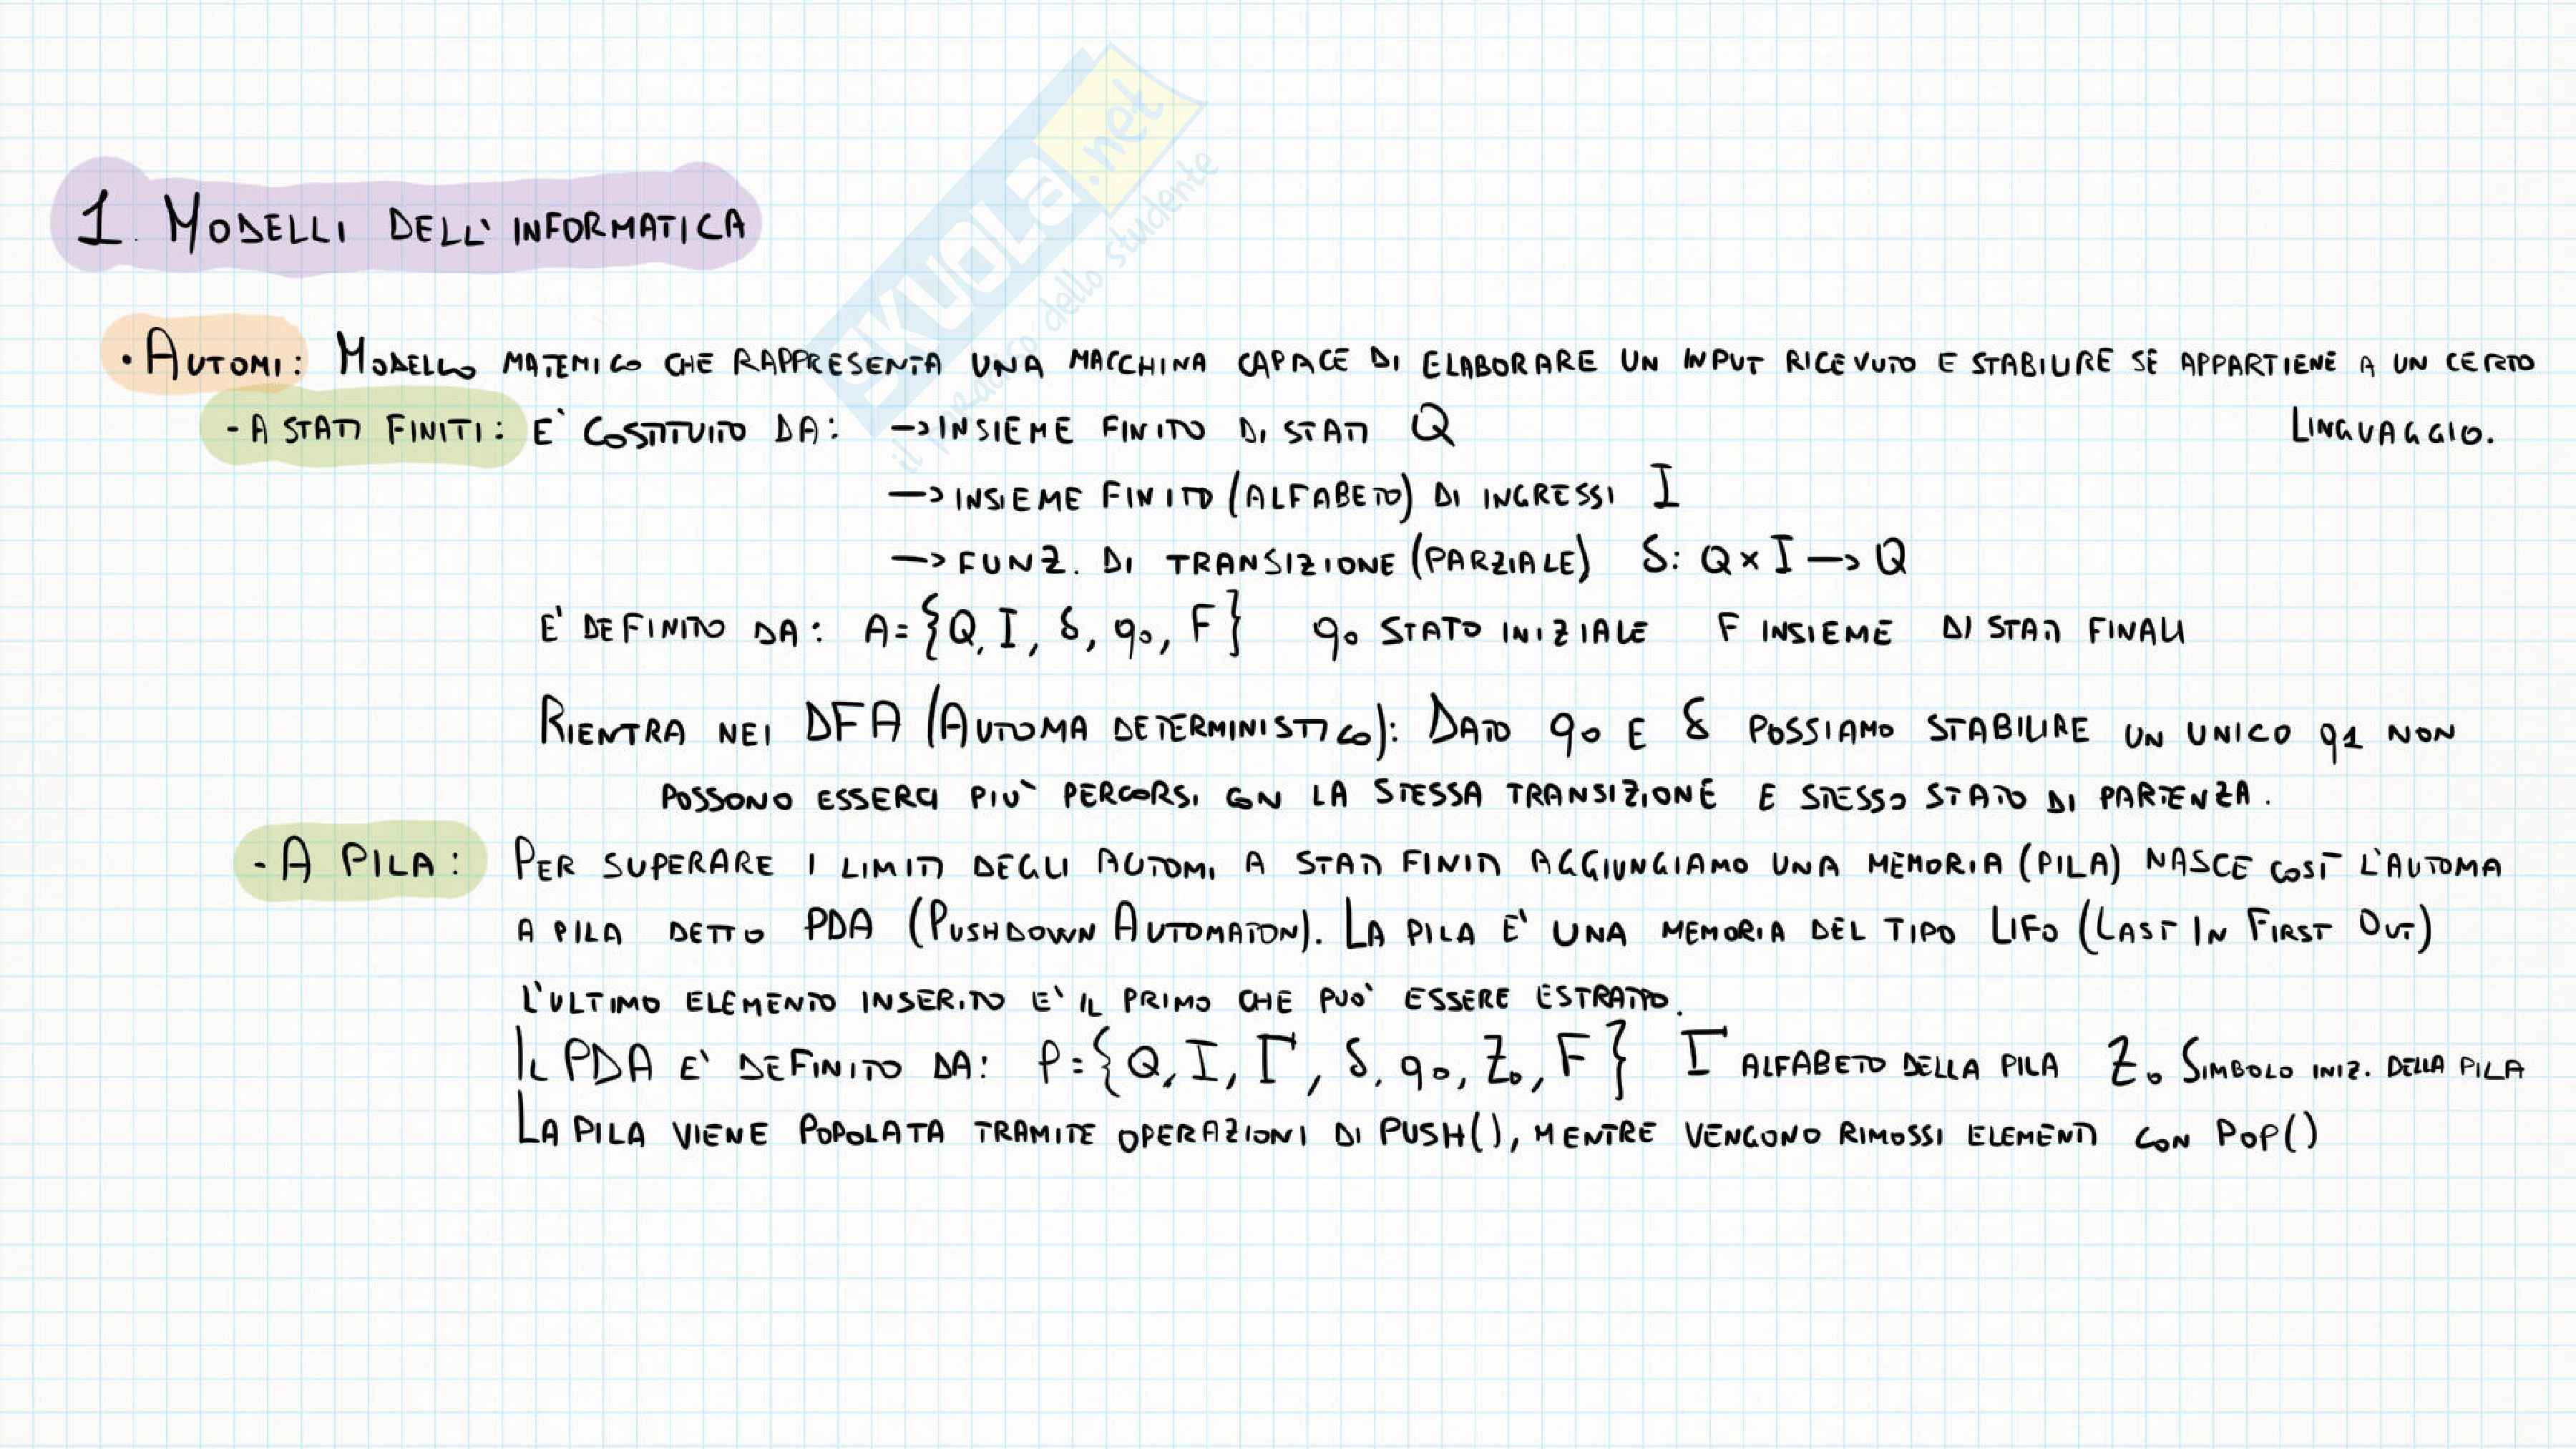 SKUOLA.net
il paradiso dello studente
1. MODELLI DELL'INFORMATICA
• AUTOMI: MODELLO MATEMICO CHE RAPPRESENTA UNA MACCHINA CAPACE DI ELABORARE UN INPUT RICEVUTO E STABILIRE SE APPARTIENE A UN CERTO
LINGUAGGIO.
- A STATI FINITI: E' COSTITUITO DA: → INSIEME FINITO DI STATI Q
→ INSIEME FINITO (ALFABETO) DI INGRESSI I
→ FUNZ. DI TRANSIZIONE (PARZIALE) δ: Q×I → Q
E' DEFINITO DA: A={Q, I, δ, q0, F} q0 STATO INIZIALE F INSIEME DI STATI FINALI
RIENTRA NEI DFA (AUTOMA DETERMINISTICO): DATO q0 E δ POSSIAMO STABILIRE UN UNICO q1 NON
POSSONO ESSERCI PIU' PERCORSI CON LA STESSA TRANSIZIONE E STESSO STATO DI PARTENZA.
- A PILA: PER SUPERARE I LIMITI DEGLI AUTOMI A STATI FINITI AGGIUNGIAMO UNA MEMORIA (PILA) NASCE COSÌ L'AUTOMA
A PILA DETTO PDA (PUSHDOWN AUTOMATON). LA PILA E' UNA MEMORIA DEL TIPO LIFO (LAST IN FIRST OUT)
L'ULTIMO ELEMENTO INSERITO E' IL PRIMO CHE PUO' ESSERE ESTRATTO.
IL PDA E' DEFINITO DA: P={Q, I, Γ, δ, q0, Z0, F} Γ ALFABETO DELLA PILA Z0 SIMBOLO INIZ. DELLA PILA
LA PILA VIENE POPOLATA TRAMITE OPERAZIONI DI PUSH(), MENTRE VENGONO RIMOSSI ELEMENTI CON POP()